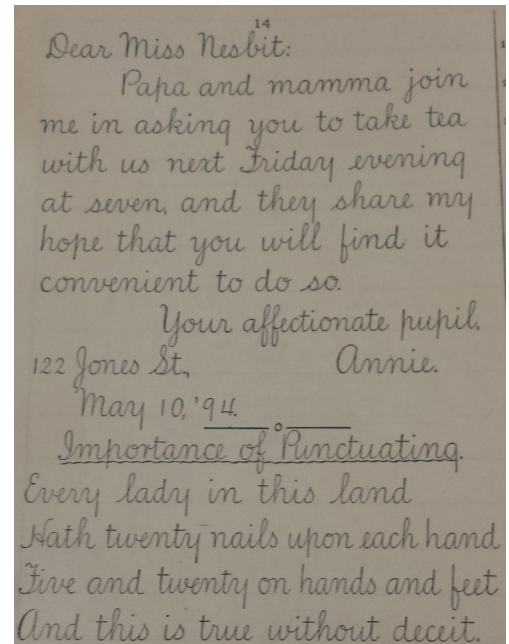 14
Dear Miss Nesbit:
Papa and mamma join
me in asking you to take tea
with us next Friday evening
at seven, and they share my
hope that you will find it
convenient to do so.
Your affectionate pupil,
122 Jones St., Annie.
May 10, '94.
Importance of Punctuating.
Every lady in this land
Hath twenty nails upon each hand
Five and twenty on hands and feet
And this is true without deceit.